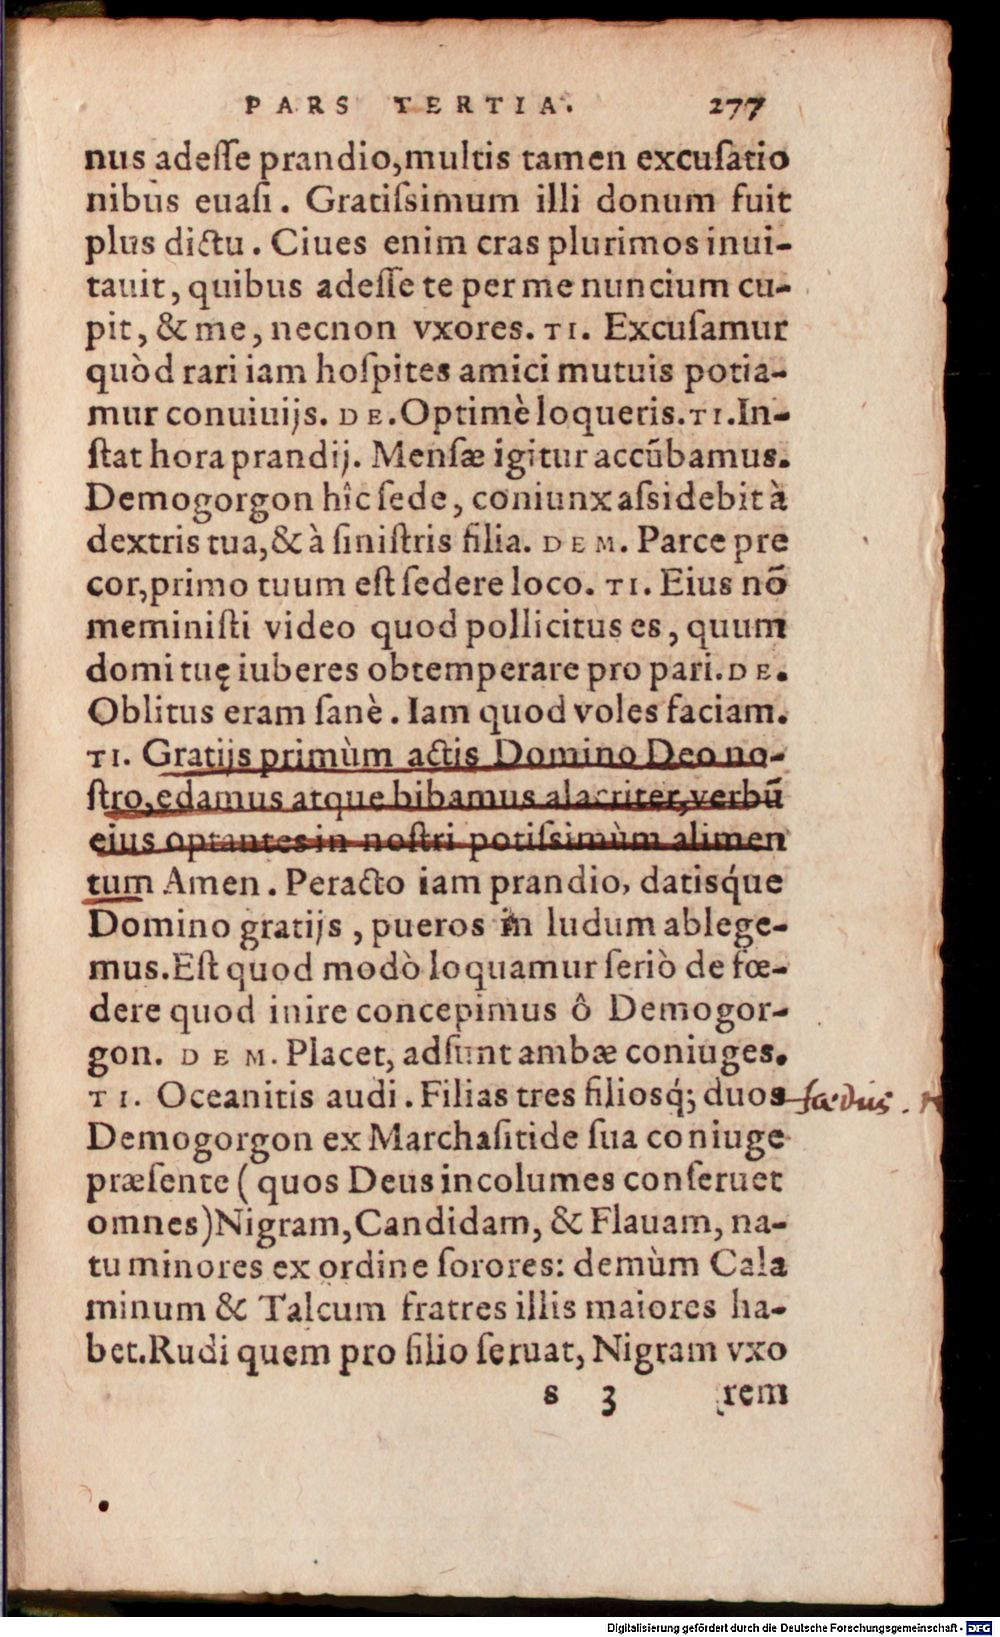 PARS TERTIA. 277
nus adeſſe prandio, multis tamen excuſatio
nibus euaſi. Gratiſsimum illi donum fuit
plus dictu. Ciues enim cras plurimos inui-
tauit, quibus adeſſe te per me nuncium cu-
pit, & me, necnon vxores. TI. Excuſamur
quòd rari iam hoſpites amici mutuis potia-
mur conuiuijs. DE. Optimè loqueris. TI. In-
ſtat hora prandij. Menſæ igitur accūbamus.
Demogorgon hîc ſede, coniunx aſsidebit à
dextris tua, & à ſiniſtris filia. DEM. Parce pre
cor, primo tuum eſt ſedere loco. TI. Eius nō
meminiſti video quod pollicitus es, quum
domi tuę iuberes obtemperare pro pari. DE.
Oblitus eram ſanè. Iam quod voles faciam.
TI. Gratijs primùm actis Domino Deo no-
ſtro, edamus atque bibamus alacriter, verbū
eius optantes in noſtri potiſsimùm alimen
tum Amen. Peracto iam prandio, datisq́ue
Domino gratijs, pueros in ludum ablege-
mus. Eſt quod modò loquamur ſeriò de fœ-
dere quod inire concepimus ô Demogor-
gon. DEM. Placet, adſunt ambæ coniuges.
TI. Oceanitis audi. Filias tres filiosq́; duos
fœdus.
Demogorgon ex Marchaſitide ſua coniuge
præſente (quos Deus incolumes conſeruet
omnes) Nigram, Candidam, & Flauam, na-
tu minores ex ordine ſorores: demùm Cala
minum & Talcum fratres illis maiores ha-
bet. Rudi quem pro filio ſeruat, Nigram vxo
s 3 rem
Digitalisierung gefördert durch die Deutsche Forschungsgemeinschaft - DFG